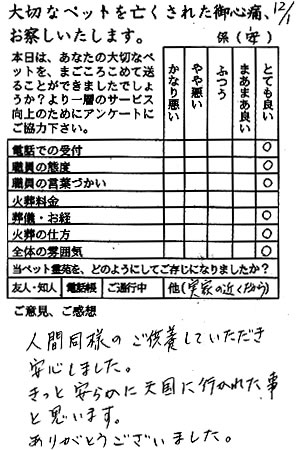 大切なペットを亡くされた御心痛、
お察しいたします。
12/1
係(安)
本日は、あなたの大切なペッ
トを、まごころこめて送
ることができましたでしょ
うか？より一層のサービス
向上のためにアンケートに
ご協力下さい。
かなり悪い
やや悪い
ふつう
まあまあ良い
とても良い
電話での受付 ○
職員の態度 ○
職員の言葉づかい ○
火葬料金
葬儀・お経 ○
火葬の仕方 ○
全体の雰囲気 ○
当ペット霊苑を、どのようにしてご存じになりましたか？
友人・知人 電話帳 ご通行中 他(実家の近くだから)
ご意見、ご感想
人間同様のご供養していただき
安心しました。
きっと安らかに天国に行かれた事
と思います。
ありがとうございました。